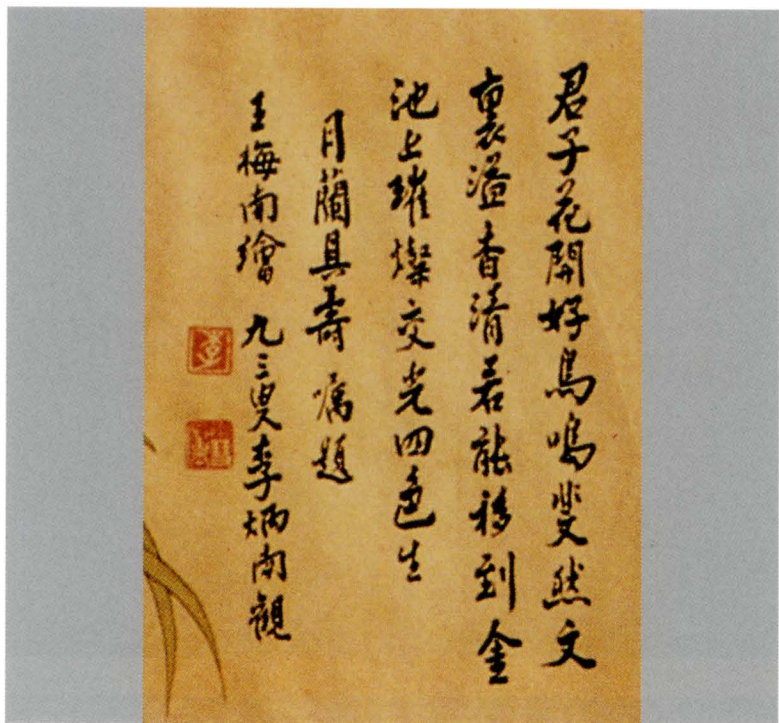 君子花開好鳥鳴斐然文
裏溢香清若能移到金
池上璀燦交光四色生
月蘭具壽囑題
王梅南繪 九三叟李炳南觀